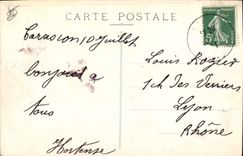 CARTE POSTALE
Tarascon 10 Juillet
bonjour a
tous
Hortense
Louis Rozier
1 ch des Verriers
Lyon
Rhône
5c